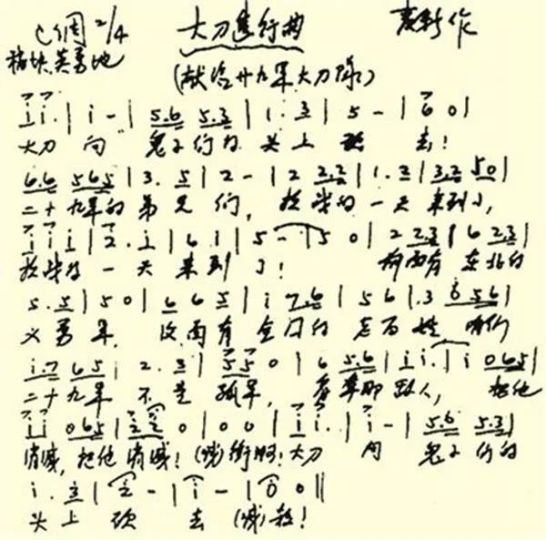 C调 2/4 大刀進行曲 麦新作
稍快 英勇地
(献给廿九军大刀队)
i i. | i - | 5.6 5.3 | 1. 3 | 5 - | 6 0 |
大刀 向 鬼子们的 头上 砍 去!
6.6 565 | 3. 5 | 2 - | 2 2.3 | 1. 2 | 3.2 5 0 |
二十九军的弟兄们, 抗战的一天来到了,
i i i | 2. i | 6 i | 5 - | 5 0 | 2 2 3 | 6 2 3 |
抗战的一天来到了! 前面有 东北的
5. 5 | 5 0 | 6 6 5 | i 7.6 | 5 6 | 1.3 6 5 6 |
义勇军, 后面有全国的老百姓 咱们
i.7 6 5 | 2. 3 | 5 5 0 | 6 5.6 | i i. | i 0 6 5 |
二十九军不是孤军, 看准那敌人, 把他
i i 0 6 5 | 2 2 0 | 0 0 | i i. | i - | 5.6 5.3 |
消灭, 把他消灭! (喊)衝啊! 大刀 向 鬼子们的
i. 3 | 2 - | i - | 0 0 ||
头上 砍 去 (喊)杀!